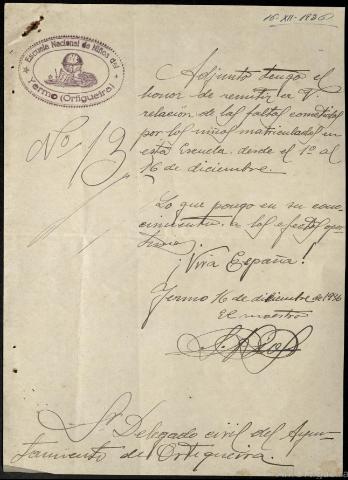 16-XII-1936
Escuela Nacional de Niños del
Yermo (Ortigueira)
Nº 13
Adjunto tengo el
honor de remitir a V.
relación de las faltas cometidas
por los niños matriculados en
esta Escuela desde el 1º al
16 de diciembre.
Lo que pongo en su cono-
cimiento a los efectos opor-
tunos.
¡Viva España!
Yermo 16 de diciembre de 1936
El maestro
Sr. Delegado civil del Ayun-
tamiento de Ortigueira.